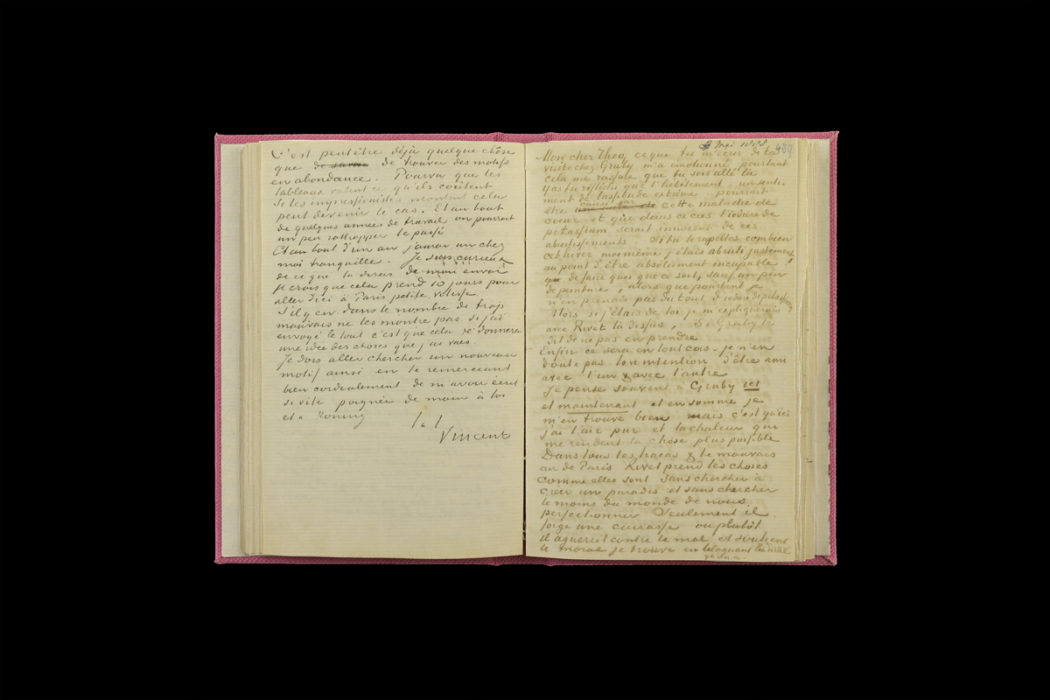 C'est peutêtre déjà quelque chose
que de savoir de trouver des motifs
en abondance. Pourvu que les
tableaux valent ce qu'ils coutent
Si les impressionistes montent cela
peut devenir le cas. Et au bout
de quelques années de travail on pourrait
un peu rattrapper le passé
Et au bout d'un an j'aurai un chez
moi tranquille. Je suis curieux
de ce que tu diras de mon envoi
je crois que cela prend 10 jours pour
aller d'ici à Paris petite vitesse
S'il y en dans le nombre de trop
mauvais ne les montre pas si j'ai
envoyé le tout c'est que cela te donnera
une idée des choses que j'ai vues.
Je dois aller chercher un nouveau
motif ainsi en te remerciant
bien cordialement de m'avoir écrit
si vite poignée de main à toi
et à Koning
t. à t.
Vincent
Mai 1888 489
Mon cher Theo, ce que tu m'écris de ta
visite chez Gruby m'a emotionné, pourtant
cela me rassure que tu sois allé là
Y as tu réflechi que l'hébêtement, un senti-
ment de lassitude extrême pourrait
être causé par cette maladie de
cœur et que dans ce cas l'iodure de
potassium serait innocent de ces
abrutissements. Si tu te rapelles combien
cet hiver moi même j'étais abruti justement
au point d'être absolument incapable
de faire quoi que ce soit, sauf un peu
de peinture, alors que pourtant je
n'en prenais pas du tout d'iodure de potassium
Alors si j'étais de toi je m'expliquerais
avec Rivet là dessus, si Gruby te
dit de ne pas en prendre
Enfin ce sera en tout cas – je n'en
doute pas ton intention d'être ami
avec l'un & avec l'autre
Je pense souvent à Gruby ici
et maintenant et en somme je
m'en trouve bien mais c'est qu'ici
j'ai l'air pur et la chaleur qui
me rendent la chose plus possible
Dans tous les tracas & le mauvais
air de Paris Rivet prend les choses
comme elles sont sans chercher à
créer un paradis et sans chercher
le moins du monde de nous
perfectionner Seulement il
forge une cuirasse ou plutôt
il aguerrit contre le mal et soutient
le moral je trouve en blaguant le mal